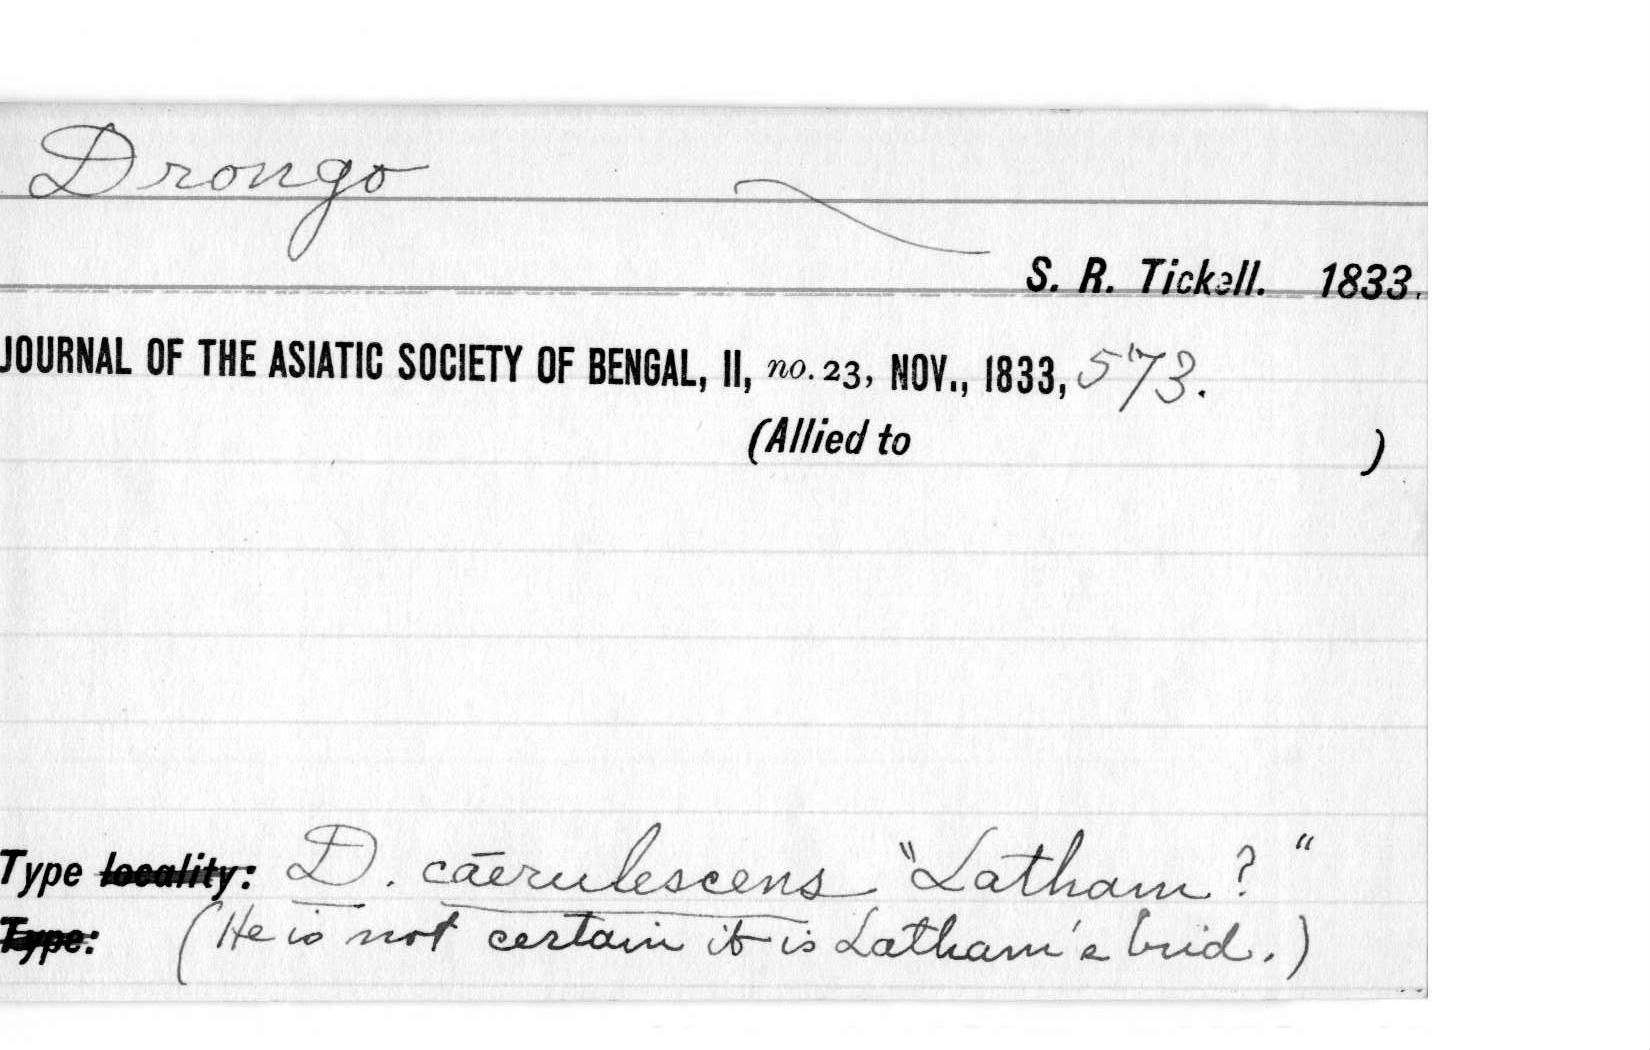 Drongo
S. R. Tickell. 1833.
JOURNAL OF THE ASIATIC SOCIETY OF BENGAL, II, no. 23, NOV., 1833, 573.
(Allied to )
Type locality: D. cāerulescens "Latham?"
Type: (He is not certain it is Latham's bird.)